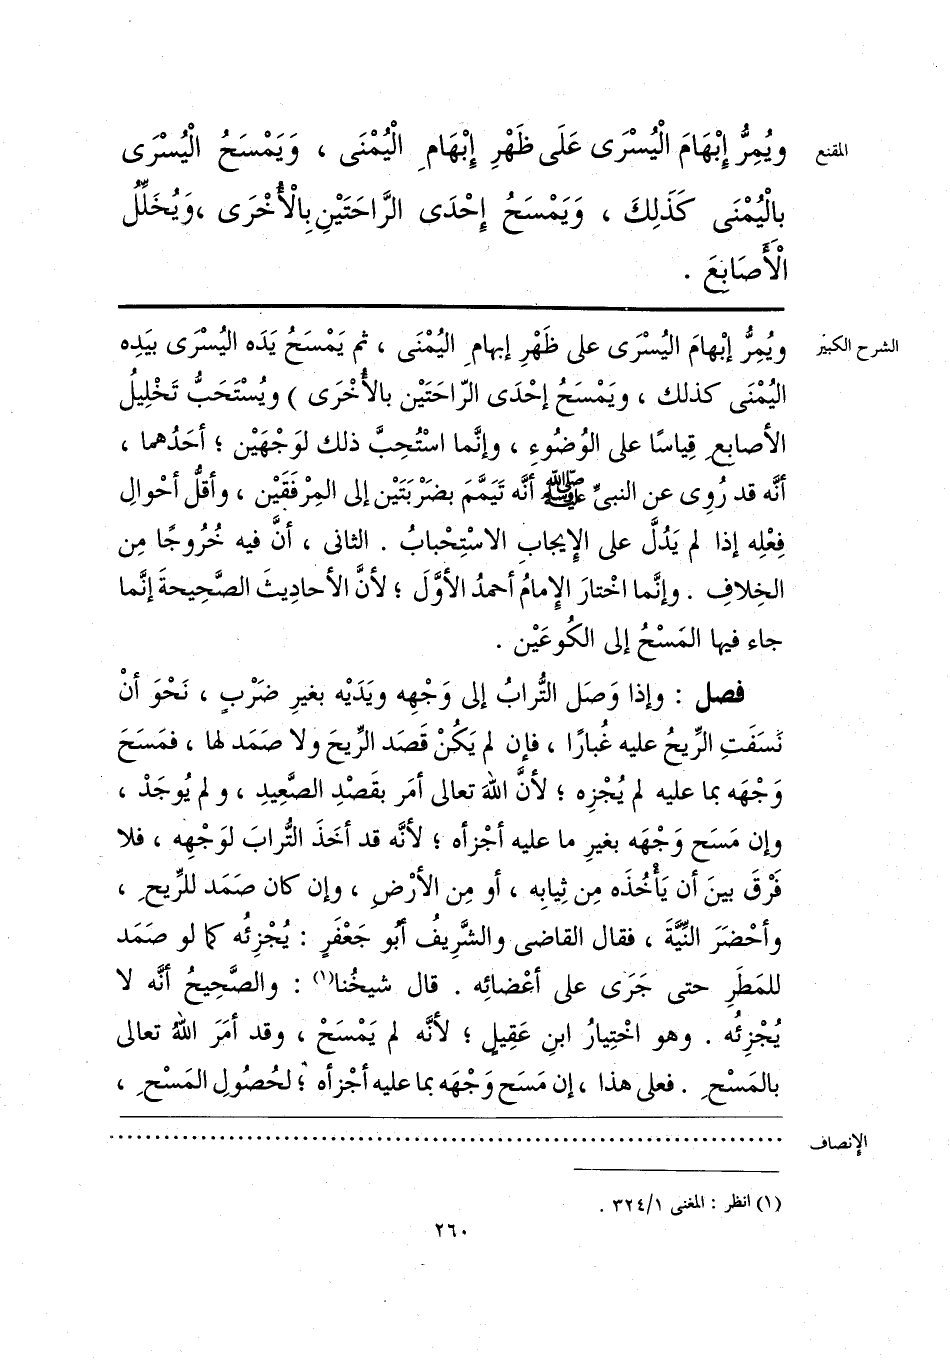 المقنع
ويُمِرُّ إِبْهَامَ الْيُسْرَى عَلَى ظَهْرِ إِبْهَامِ الْيُمْنَى ، وَيَمْسَحُ الْيُسْرَى
بالْيُمْنَى كَذَلِكَ ، وَيَمْسَحُ إِحْدَى الرَّاحَتَيْنِ بِالْأُخْرَى ،وَيُخَلِّلُ
الْأَصَابِعَ .
الشرح الكبير
ويُمِرُّ إِبْهامَ اليُسْرَى على ظَهْرِ إبهامِ اليُمْنَى ، ثم يَمْسَحُ يَدَه اليُسْرَى بيَدِه
اليُمْنَى كذلك ، ويَمْسَحُ إحْدَى الرّاحَتَيْن بالأُخْرَى ) ويُسْتَحَبُّ تَخْلِيلُ
الأصابعِ قِياسًا على الوُضُوءِ ، وإنَّما اسْتُحِبَّ ذلك لوَجْهَيْن ؛ أحَدُهما ،
أنَّه قد رُوِى عن النبىِّ ﷺ أنَّه تَيَمَّمَ بضَرْبَتَيْن إلى المِرْفَقَيْن ، وأقلُّ أحْوالِ
فِعْلِه إذا لم يَدُلَّ على الإِيجابِ الاسْتِحْبابُ . الثانى ، أنَّ فيه خُرُوجًا مِن
الخِلافِ . وإنَّما اخْتارَ الإِمامُ أحمدُ الأوَّلَ ؛ لأنَّ الأحادِيثَ الصَّحِيحةَ إنَّما
جاء فيها المَسْحُ إلى الكُوعَيْن .
فصل : وإذا وَصَل التُّرابُ إلى وَجْهِه ويَدَيْه بغيرِ ضَرْبٍ ، نَحْوَ أنْ
نَسَفَتِ الرِّيحُ عليه غُبارًا ، فإن لم يَكُنْ قَصَد الرِّيحَ ولا صَمَد لها ، فمَسَحَ
وَجْهَه بما عليه لم يُجْزِه ؛ لأنَّ اللهَ تعالى أمَر بقَصْدِ الصَّعِيدِ ، ولم يُوجَدْ ،
وإن مَسَح وَجْهَه بغيرِ ما عليه أجْزأه ؛ لأنَّه قد أخَذَ التُّرابَ لوَجْهِه ، فلا
فَرْقَ بينَ أن يَأْخُذَه مِن ثِيابِه ، أو مِن الأرْضِ ، وإن كان صَمَد للرِّيحِ ،
وأحْضَرَ النِّيَّةَ ، فقال القاضى والشَّرِيفُ أبُو جَعْفَرٍ : يُجْزِئُه كما لو صَمَد
للمَطَرِ حتى جَرَى على أعْضائِه . قال شيخُنا(١) : والصَّحِيحُ أنَّه لا
يُجْزِئُه . وهو اخْتِيارُ ابنِ عَقِيلٍ ؛ لأنَّه لم يَمْسَحْ ، وقد أمَرَ اللهُ تعالى
بالمَسْحِ . فعلى هذا ، إن مَسَح وَجْهَه بما عليه أجْزأه ؛ لحُصُولِ المَسْحِ ،
الإنصاف
................................................................................
(١) انظر : المغنى ٣٢٤/١ .
٢٦٠